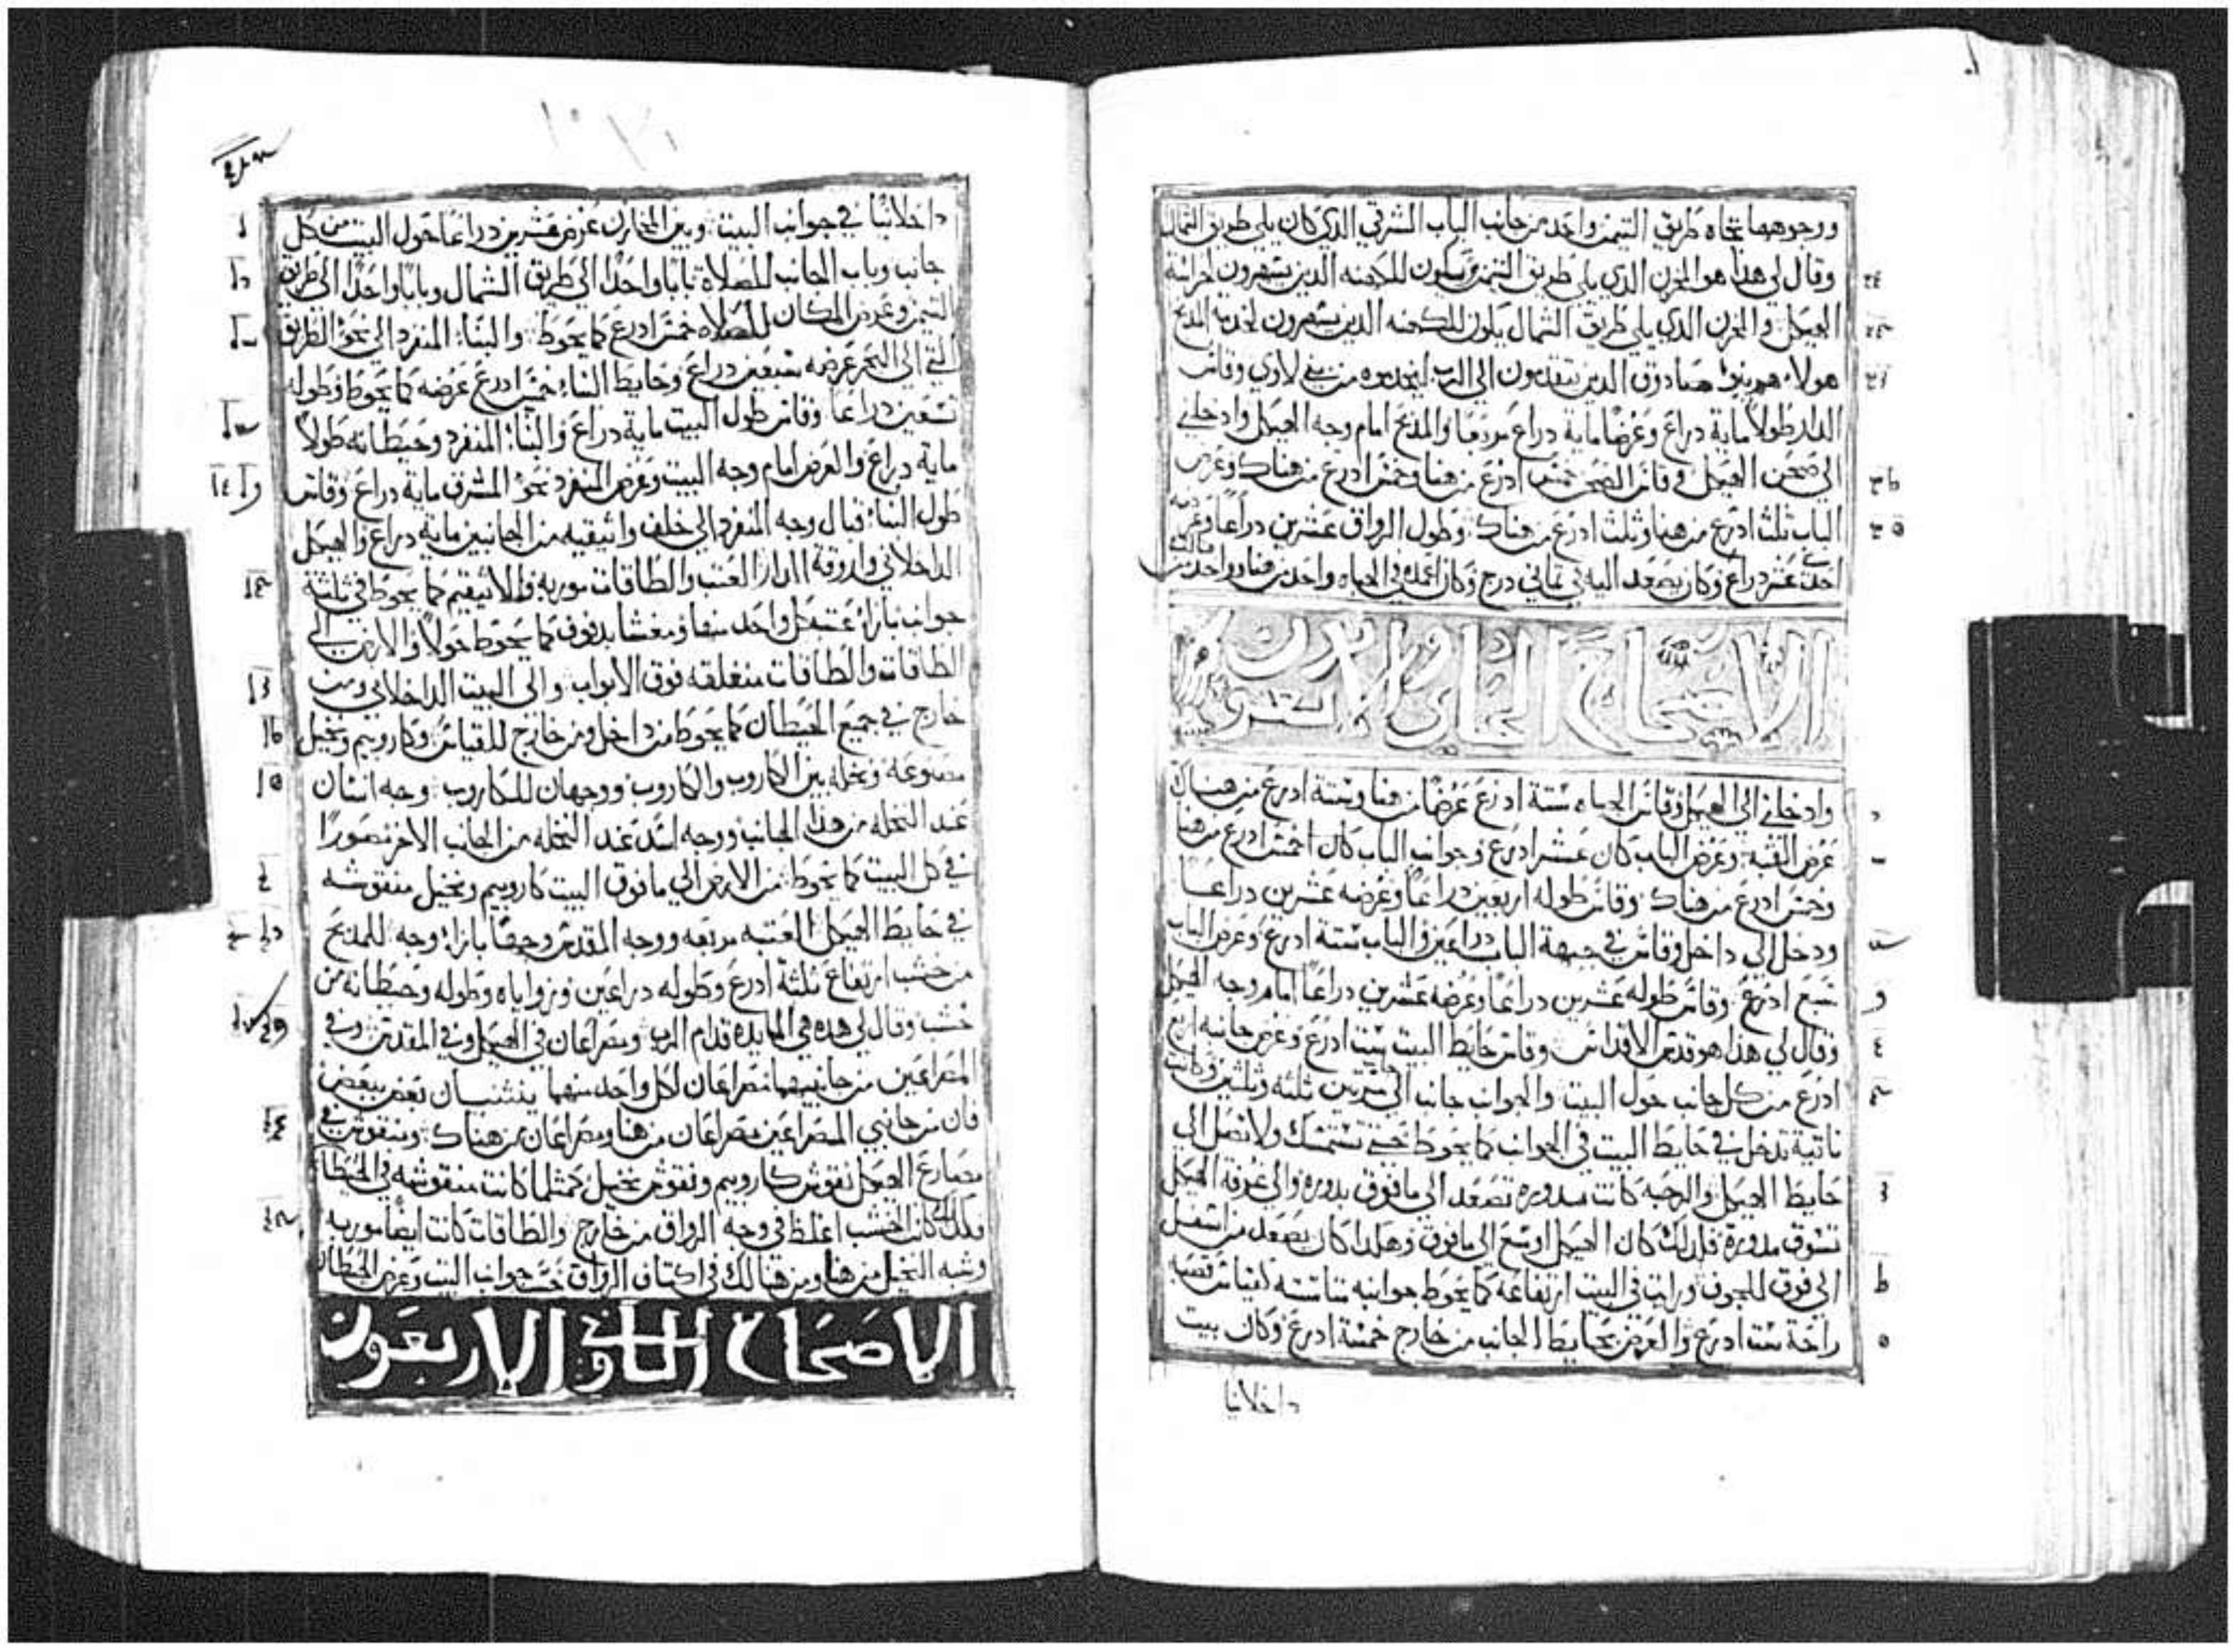 ووجوههما تجاه طريق التيمن واحد من جانب الباب الشرقي الذي كان يلي طريق الشمال
وقال لي هذا هو المخزن الذي يلي طريق التيمن يكون للكهنه الدين يسهرون لحراسة
الهيكل والمخزن الدي يلي طريق الشمال يكون للكهنه الدين يسهرون لخدمة المدبح
هولاء هم بنو صادوق الدين يتقدمون الى الرب ليخدموه من بني لاوي وقاس
الدار طولا ماية دراع وعرضا ماية دراع مربعا والمدبح امام وجه الهيكل وادخلني
الي صحن الهيكل وقاس الصحن خمس ادرع من هنا وخمس ادرع من هناك وعرض
الباب ثلث ادرع من هنا وثلث ادرع من هناك وطول الرواق عشرين دراعا وعرضه
احدي عشر دراع وكان يصعد اليه في تماني درج وكان اعمده في الجباه واحد من هنا وواحد من هناك
الاصحاح الحادي والاربعون
وادخلني الي الهيكل وقاس الجباه ستة ادرع عرضا من هنا وستة ادرع من هناك
عرض القبة وعرض الباب كان عشر ادرع وجوانب الباب كان خمس ادرع من هنا
وخمس ادرع من هناك وقاس طوله اربعين دراعا وعرضه عشرين دراعا
ودخل الي داخل وقاس في جبهة الباب دراعين والباب ستة ادرع وعرض الباب
سبع ادرع وقاس طوله عشرين دراعا وعرضه عشرين دراعا امام وجه الهيكل
وقال لي هذا هو قدس الاقداس وقاس حايط البيت ست ادرع وعرض جانبه اربع
ادرع من كل جانب حول البيت والجوانب جانب الي مرتين ثلثه وثلثين وكانت
ناتية تدخل في حايط البيت في الجوانب كما يحوط حتي تستمسك ولا تصل الي
حايط الهيكل والرحبه كانت مدوره تصعد الي ما فوق بدوره والي غرفة الهيكل
تسوق مدورة فلدلك كان الهيكل اوسع الي ما فوق وهكدا كان يصعد من اسفل
الي فوق للجوف ورايت في البيت ارتفاعه كما يحوط جوانبه متاسسه بقياس قصبه
راحة ست ادرع والعرض بحايط الجانب من خارج خمسة ادرع وكان بيت
داخلانيا
داخلانيا في جوانب البيت وبين المخازن عرض عشرين دراعا حول البيت من كل
جانب وباب الجانب للصلاة بابا واحدا الي طريق الشمال وبابا واحدا الي طريق
التيمن وعرض المكان للصلاه خمس ادرع كما يحوط والبناء المنفرد الي نحو الطريق
التي الي البحر عرضه سبعين دراع وحايط البناء خمس ادرع عرضه كما يحوط وطوله
تسعين دراعا وقاس طول البيت ماية دراع والبناء المنفرد وحيطانه طولا
ماية دراع والعرض امام وجه البيت وعرض المنفرد نحو المشرق ماية دراع وقاس
طول البناء قبال وجه المنفرد الي خلف واتيقيه من الجانبين ماية دراع والهيكل
الداخلاني واروقة الدار العتب والطاقات موربه والاتيقيم كما يحوط في ثلثة
جوانب بازاء عتبه كل واحد منها ومغشا بدفوف كما يحوط حولا والارض الي
الطاقات والطاقات منغلقه فوق الابواب والي البيت الداخلاني ومن
خارج في جميع الحيطان كما يحوط من داخل ومن خارج للقياس وكاروبيم ونخيل
مصنوعة ونخله بين الكاروب والكاروب ووجهان للكاروب وجه انسان
عند النخله من هدا الجانب ووجه اسد عند النخله من الجانب الاخر مصورا
في كل البيت كما يحوط من الارض الي ما فوق البيت كاروبيم ونخيل منقوشه
في حايط الهيكل العتبه مربعه ووجه المقدس وجها بازاء وجه للمدبح
من خشب ارتفاع ثلثة ادرع وطوله دراعين وزواياه وطوله وحيطانه من
خشب وقال لي هده هي المايده قدام الرب ومصراعان في الهيكل وفي المقدس وفي
المصراعين من جانبيهما مصراعان لكل واحد منهما ينثنيان بعض ببعض
فان من جانبي المصراعين مصراعان من هنا ومصراعان من هناك ومنقوش في
مصارع الهيكل نقوش كاروبيم ونقوش نخيل كمثلما كانت منقوشه في الحيطان
فلدلك كان الخشب اغلظ في وجه الرواق من خارج والطاقات كانت ايضا موربه
وشبه النخيل من هنا ومن هنالك في اكتاف الرواق حسب جوانب البيت وعرض الحيطان
الاصحاح الثاني والاربعون